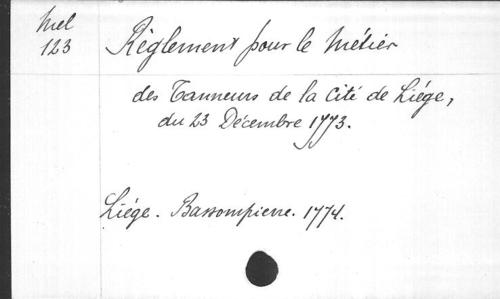 Mel
123
Règlement pour le Métier
des Tanneurs de la Cité de Liége,
du 23 Décembre 1773.
Liége. Bassompierre. 1774.